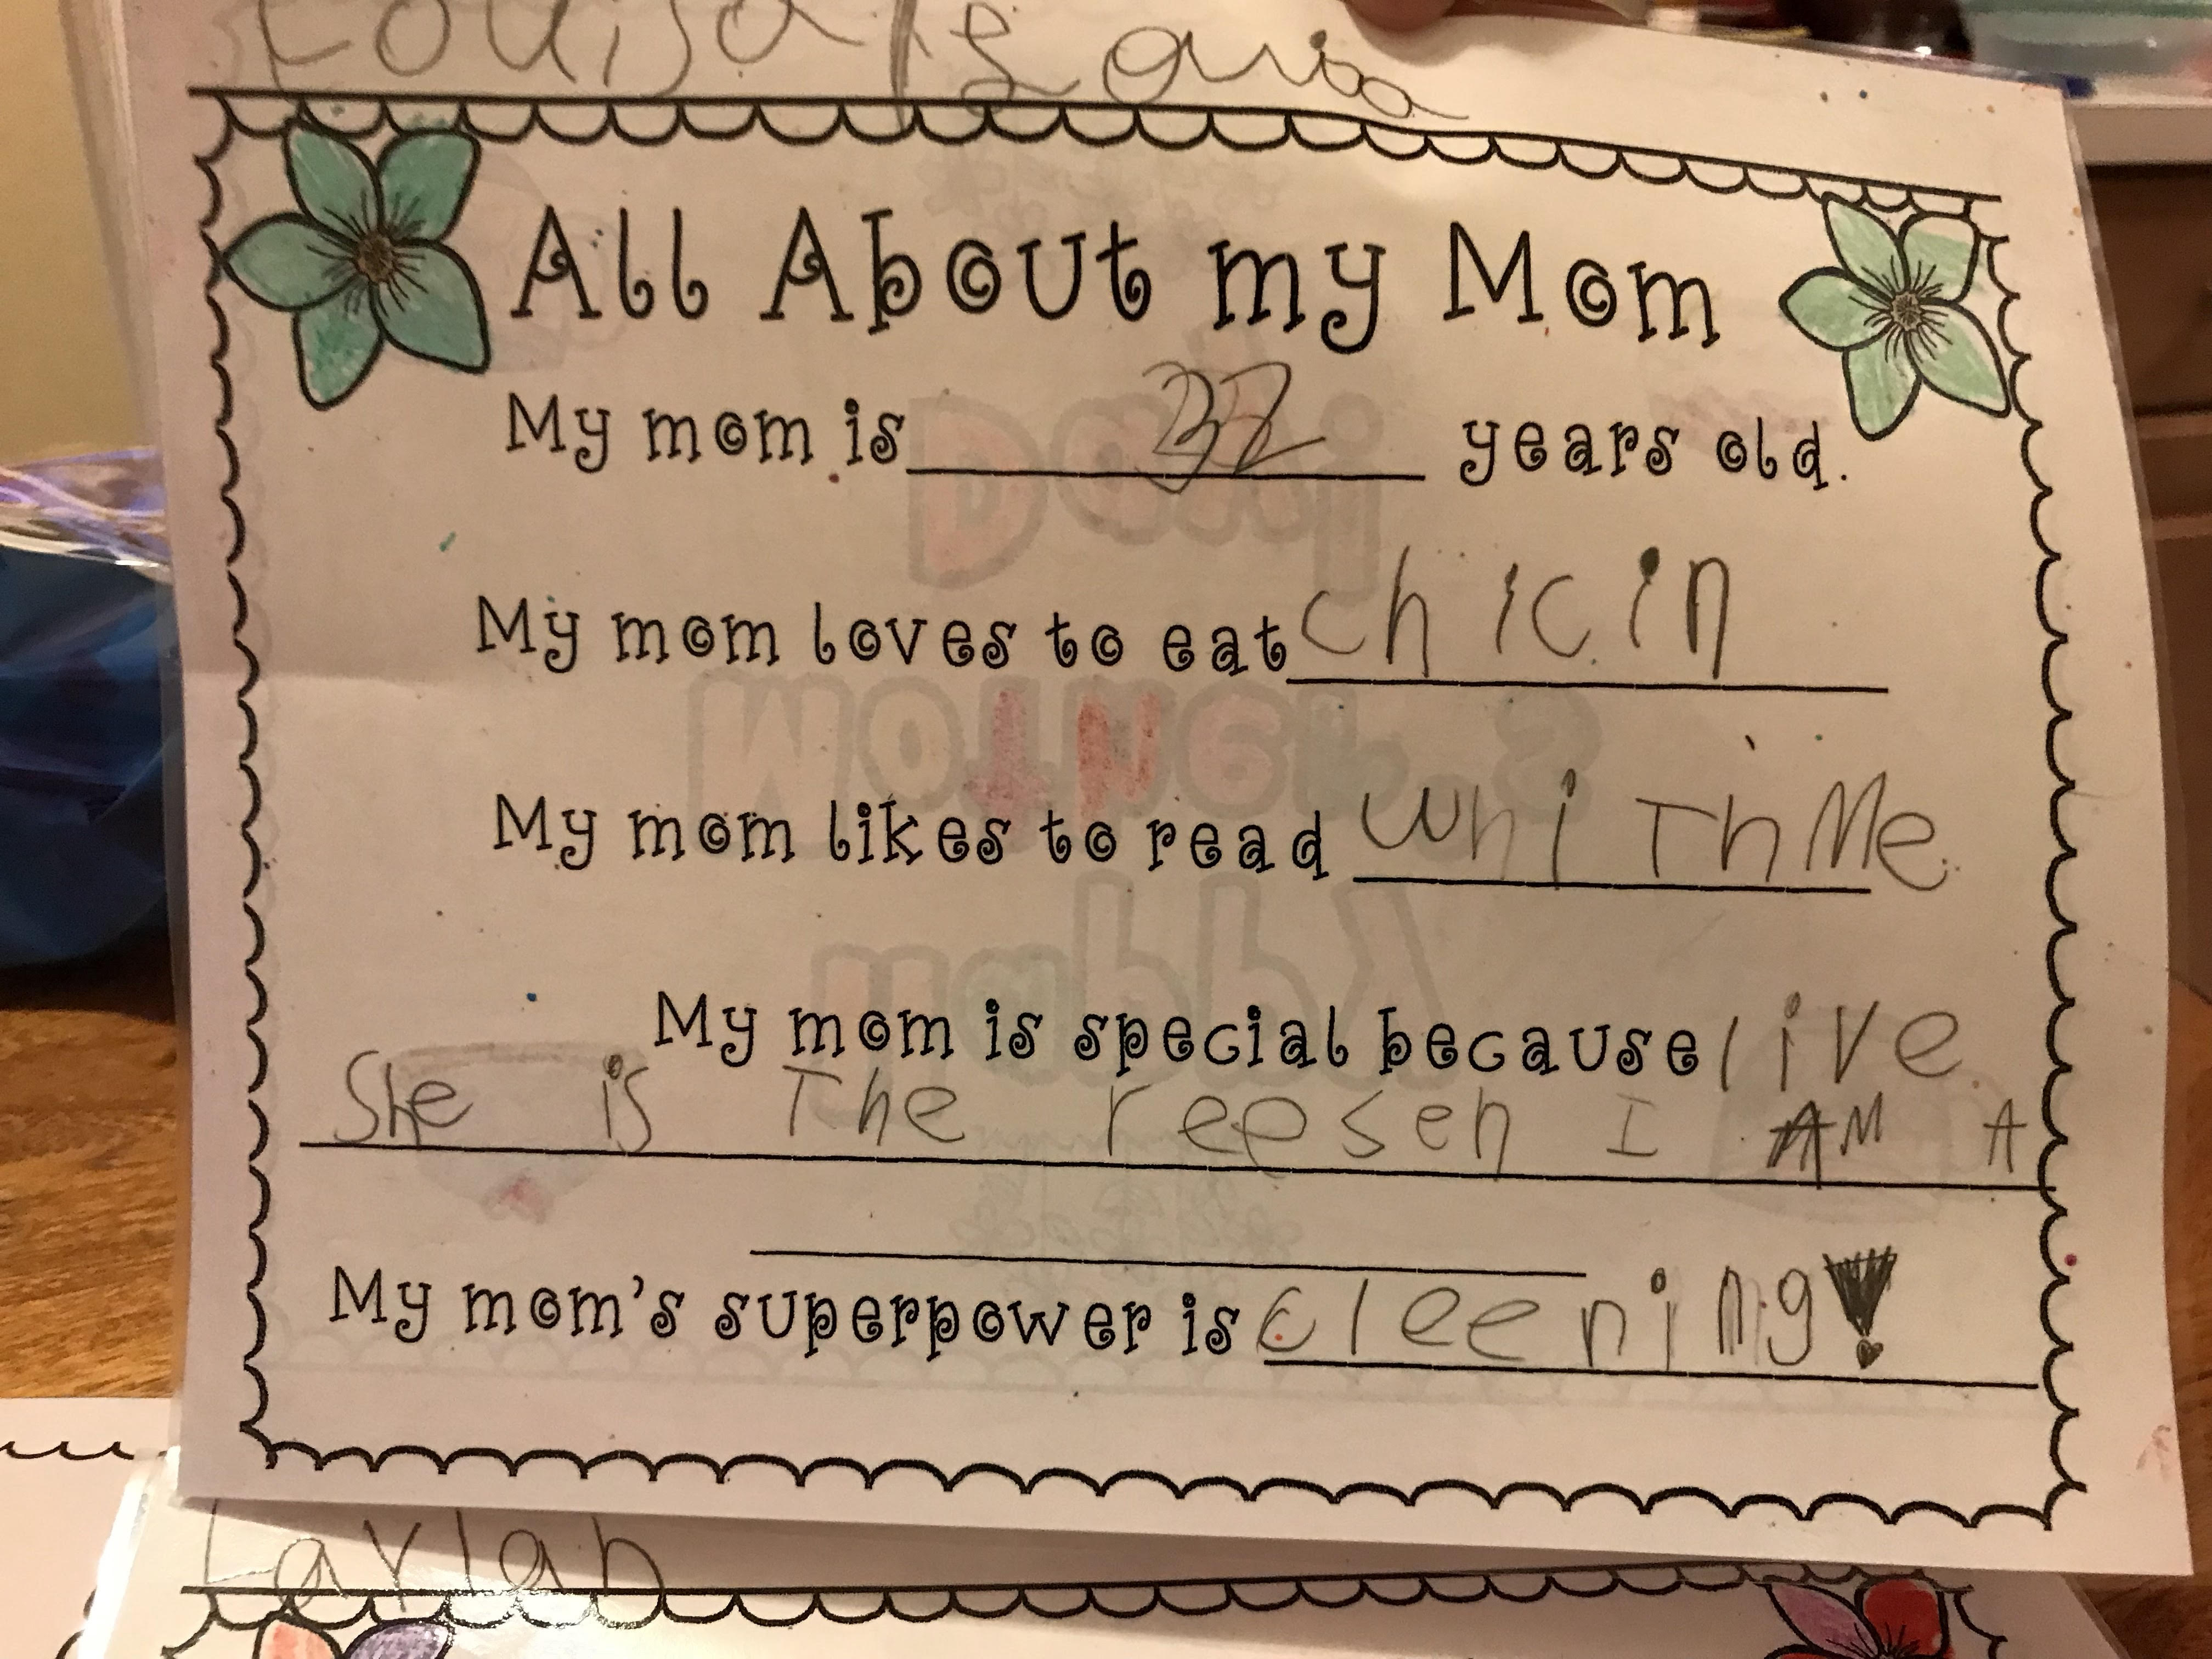 Louisa
All About my Mom
My mom is 32 years old.
My mom loves to eat chicin
My mom likes to read whi Th Me
My mom is special because live
She is The reesen I AM A
My mom's superpower is cleening!
Laylah